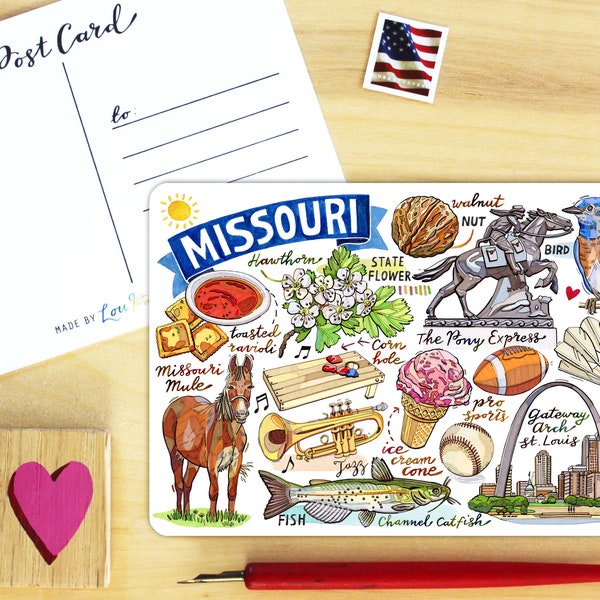 Post Card
to:
MADE BY Lou
MISSOURI
Hawthorn
STATE
FLOWER
walnut
NUT
BIRD
toasted
ravioli
Corn
hole
The Pony Express
Missouri
Mule
Jazz
ice
cream
cone
pro
sports
Gateway
Arch
St. Louis
FISH
Channel Catfish